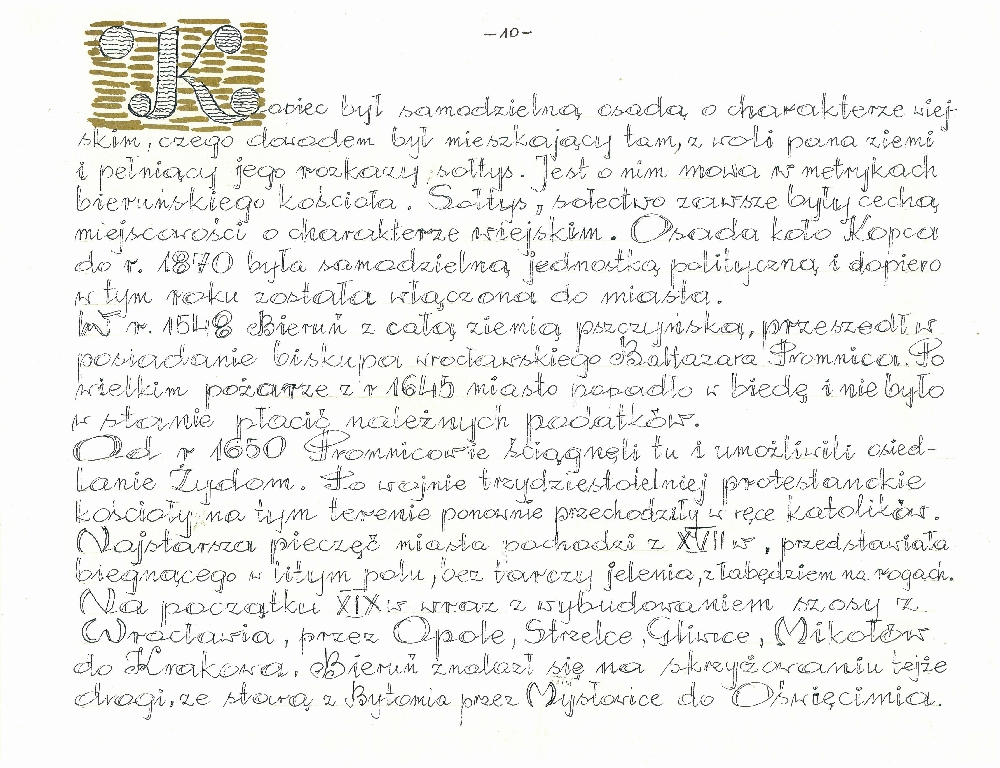 -10-
Kopiec był samodzielną osadą o charakterze wiej-
skim, czego dowodem był mieszkający tam, z woli pana ziemi
i pełniący jego rozkazy sołtys. Jest o nim mowa w metrykach
bieruńskiego kościoła. Sołtys, sołectwo zawsze były cechą
miejscowości o charakterze wiejskim. Osada koło Kopca
do r. 1870 była samodzielną jednostką polityczną i dopiero
w tym roku została włączona do miasta.
W r. 1548 Bieruń z całą ziemią pszczyńską, przeszedł w
posiadanie biskupa wrocławskiego Baltazara Promnica. Po
wielkim pożarze z r 1645 miasto popadło w biedę i nie było
w stanie płacić należnych podatków.
Od r 1650 Promnicowie ściągnęli tu i umożliwili osied-
lanie Żydom. Po wojnie trzydziestoletniej protestanckie
kościoły na tym terenie ponownie przechodziły w ręce katolików.
Najstarsza pieczęć miasta pochodzi z XVII w, przedstawiała
biegnącego w litym polu, bez tarczy jelenia, z łabędziem na rogach.
Na początku XIX w wraz z wybudowaniem szosy z
Wrocławia, przez Opole, Strzelce, Gliwice, Mikołów
do Krakowa, Bieruń znalazł się na skrzyżowaniu tejże
drogi, ze starą z Bytomia przez Mysłowice do Oświęcimia.